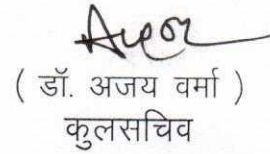 ( डॉ. अजय वर्मा )
कुलसचिव